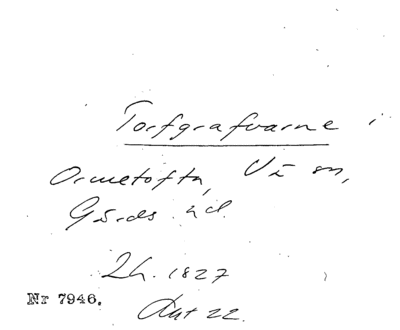 Torfgrafvarne i
Ormetofta, Vä sn,
Gärds hd.
Lh. 1827
Nr 7946.
Ant 22.